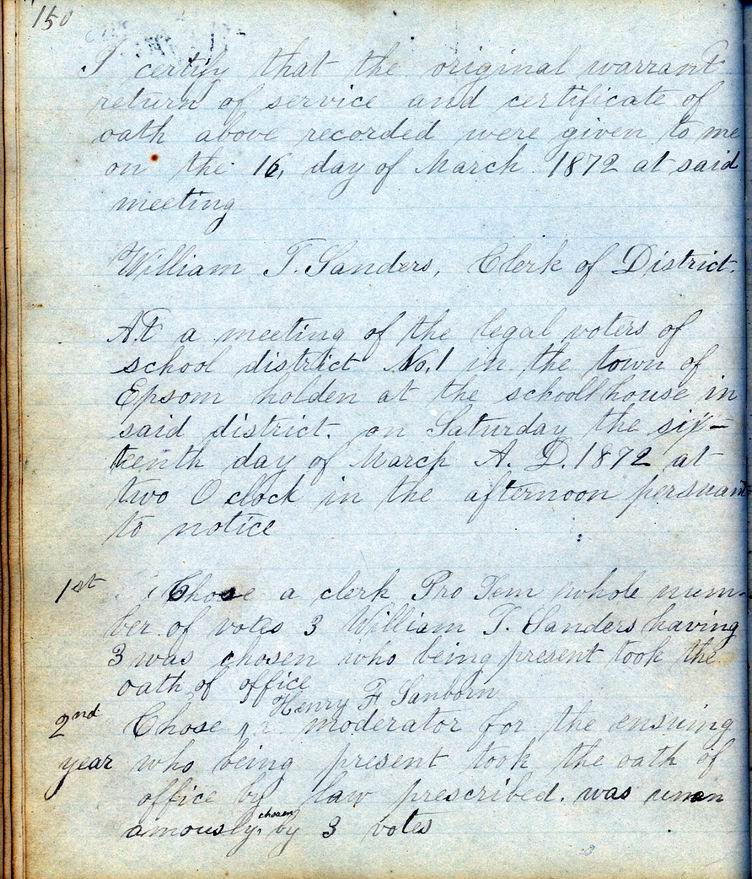 150
I certify that the original warrant
return of service and certificate of
oath above recorded were given to me
on the 16, day of March 1872 at said
meeting
William T. Sanders, Clerk of District.
At a meeting of the legal voters of
school district No. 1 in the town of
Epsom holden at the schoolhouse in
said district. on Saturday the six-
teenth day of March A. D. 1872 at
two O clock in the afternoon persuant
to notice
1st Chose a clerk Pro Tem whole num-
ber of votes 3 William T. Sanders having
3 was chosen who being present took the
oath of office
Henry F Sanborn
2nd Chose moderator for the ensuing
year who being present took the oath of
office by law prescribed. was unan
amously. chosen by 3 votes